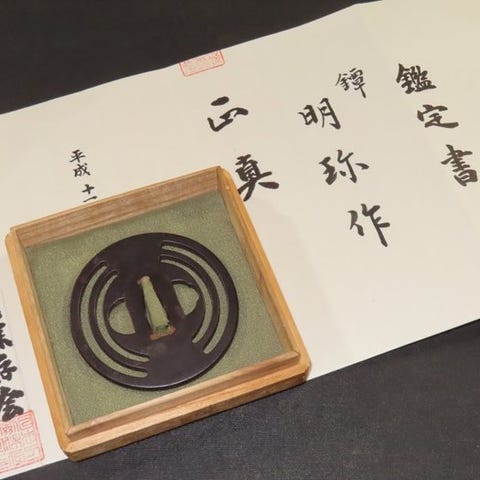 鑑定書
鐔
明珎作
正真
平成十一
保存会